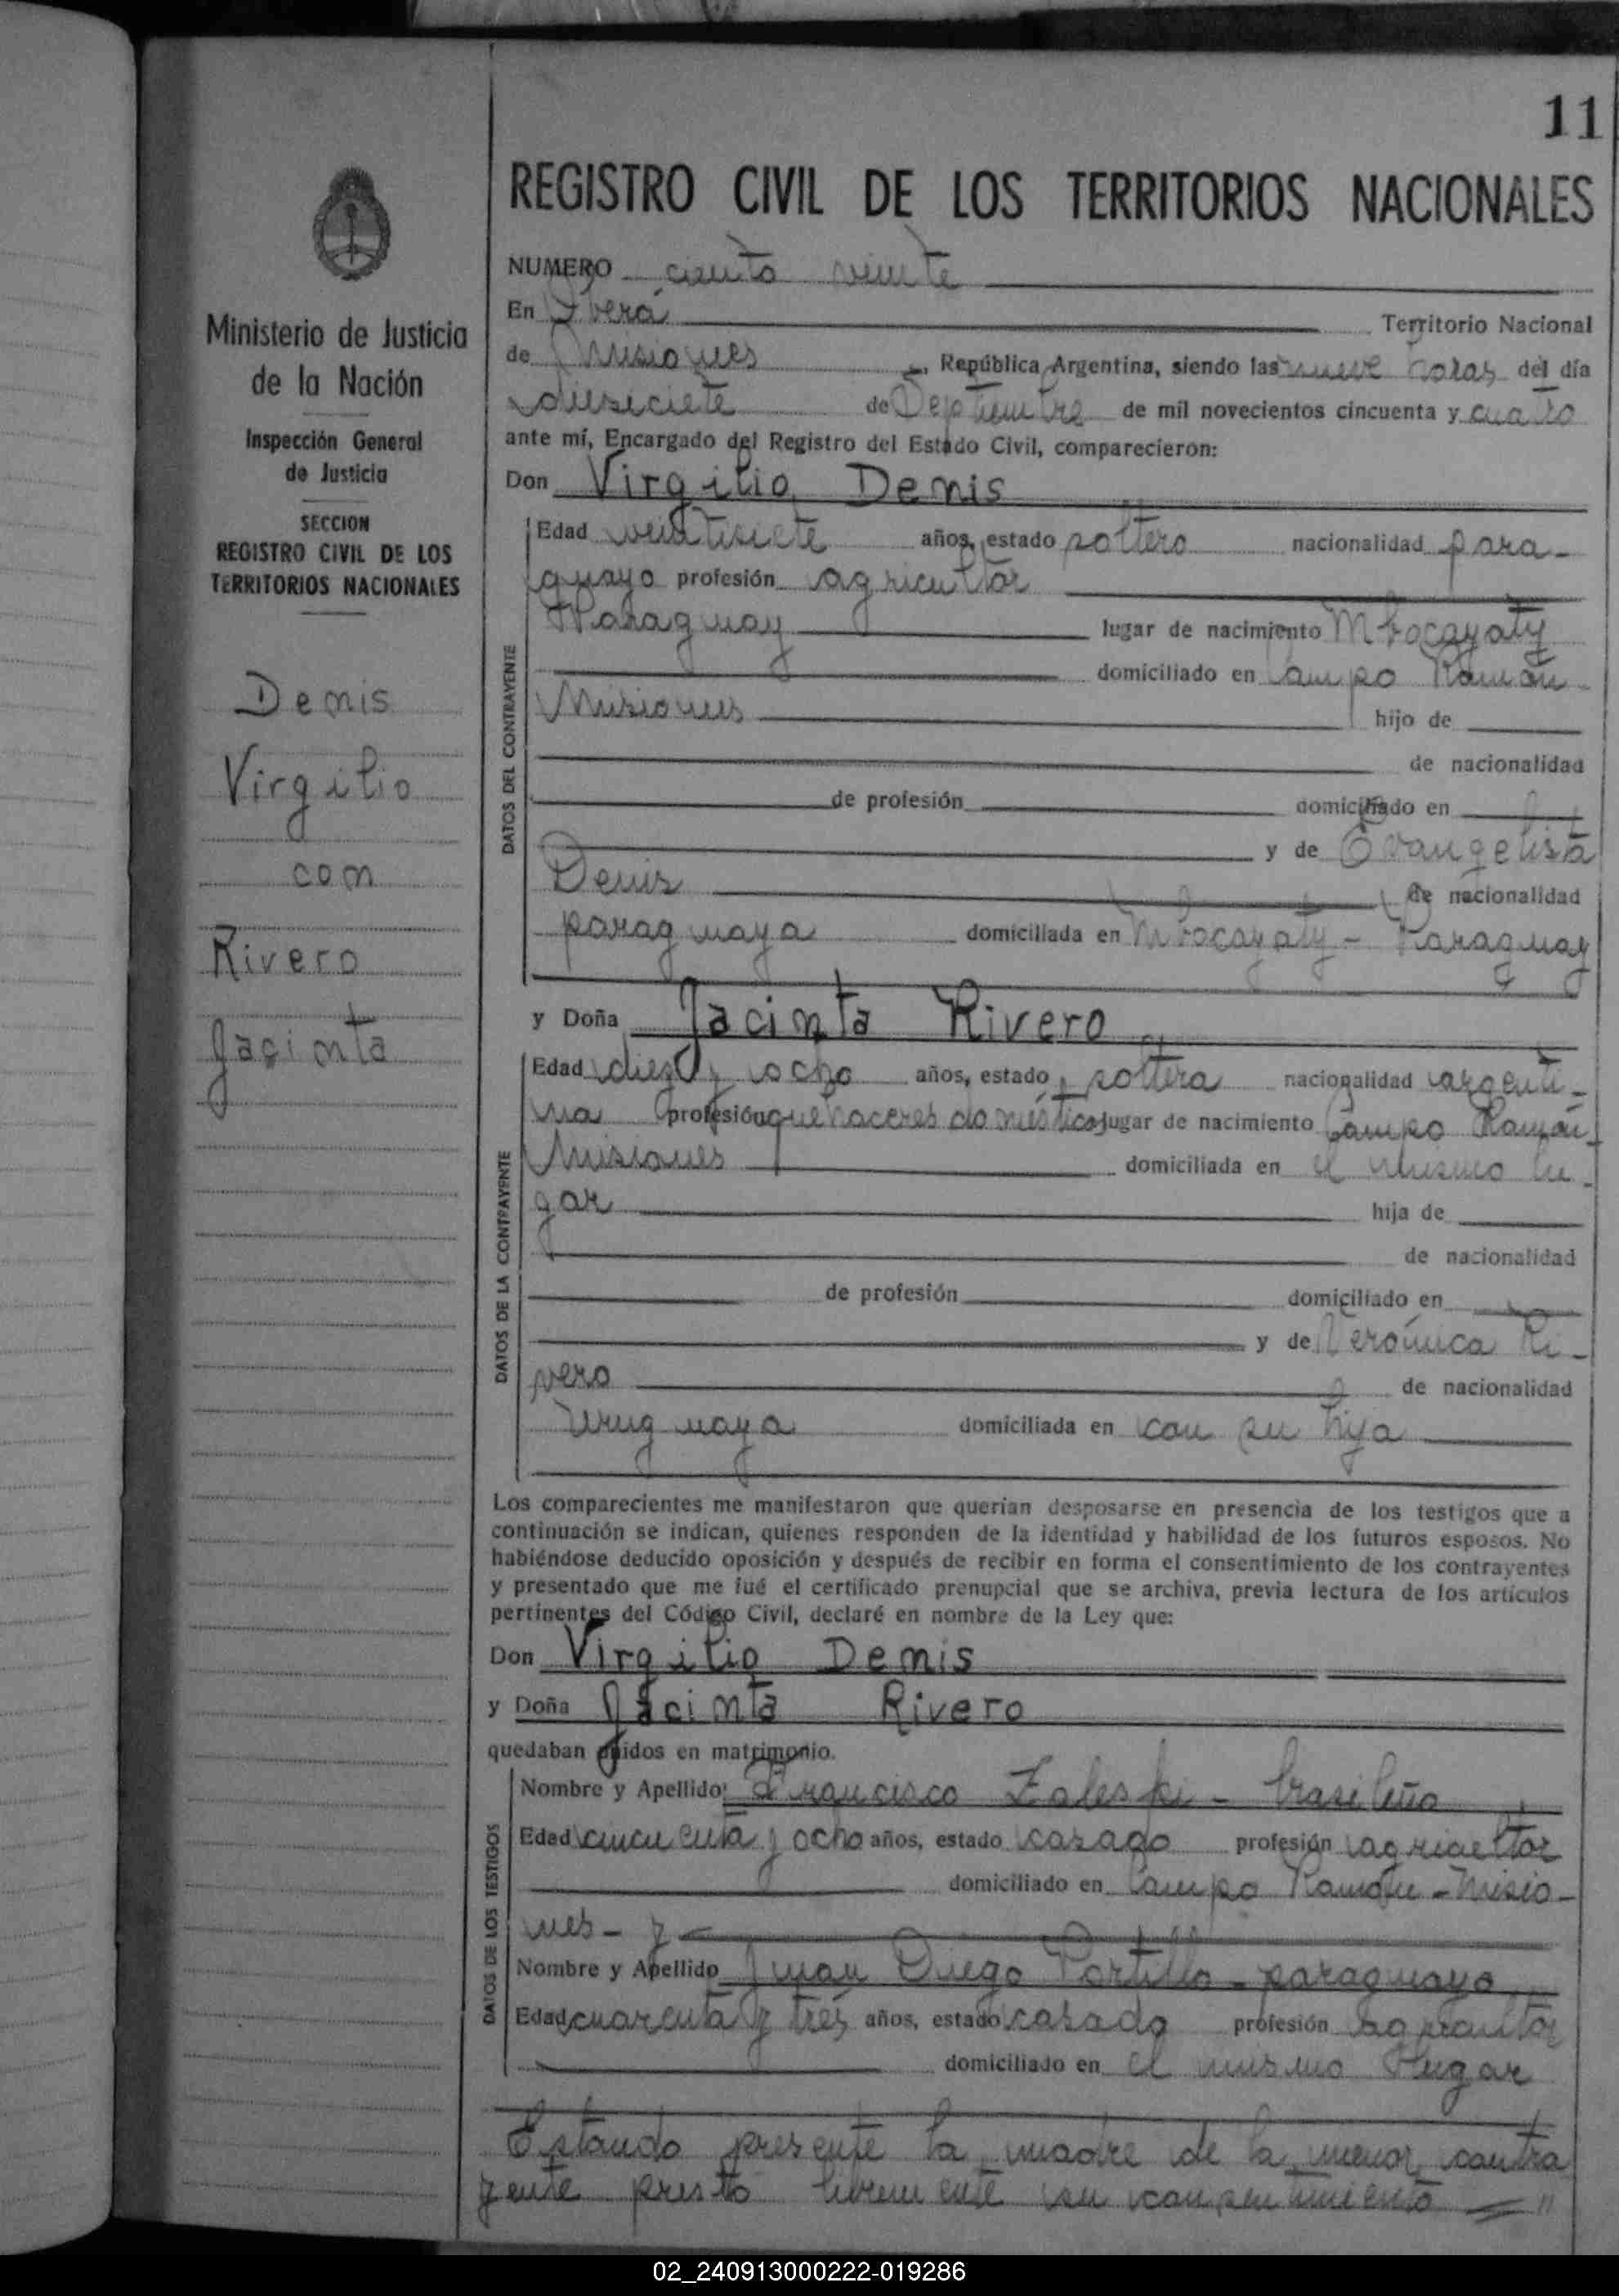 11
REGISTRO CIVIL DE LOS TERRITORIOS NACIONALES
NUMERO ciento veinte
En Oberá Territorio Nacional
de Misiones, República Argentina, siendo las nueve horas del día
diesiciete de Septiembre de mil novecientos cincuenta y cuatro
ante mí, Encargado del Registro del Estado Civil, comparecieron:
Don Virgilio Denis
DATOS DEL CONTRAYENTE
Edad veintisiete años, estado soltero nacionalidad para-
guayo profesión agricultor
Paraguay lugar de nacimiento Mbocayaty
domiciliado en Campo Ramón
Misiones hijo de
de nacionalidad
de profesión domiciliado en
y de Evangelista
Denis de nacionalidad
paraguaya domiciliada en Mbocayaty - Paraguay
y Doña Jacinta Rivero
DATOS DE LA CONTRAYENTE
Edad dies y ocho años, estado soltera nacionalidad argenti-
na profesión quehaceres domésticos lugar de nacimiento Campo Ramón
Misiones domiciliada en el mismo lu-
gar hija de
de nacionalidad
de profesión domiciliado en
y de Verónica Ri-
vero de nacionalidad
Uruguaya domiciliada en con su hija
Los comparecientes me manifestaron que querían desposarse en presencia de los testigos que a
continuación se indican, quienes responden de la identidad y habilidad de los futuros esposos. No
habiéndose deducido oposición y después de recibir en forma el consentimiento de los contrayentes
y presentado que me fué el certificado prenupcial que se archiva, previa lectura de los artículos
pertinentes del Código Civil, declaré en nombre de la Ley que:
Don Virgilio Denis
y Doña Jacinta Rivero
quedaban unidos en matrimonio.
DATOS DE LOS TESTIGOS
Nombre y Apellido Francisco Zaleski - brasileño
Edad cincuenta y ocho años, estado casado profesión agricultor
domiciliado en Campo Ramón - Misio-
nes - y
Nombre y Apellido Juan Diego Portillo - paraguayo
Edad cuarenta y tres años, estado casado profesión agricultor
domiciliado en el mismo lugar
Estando presente la madre de la menor contra
yente prestó libremente su consentimiento
Ministerio de Justicia
de la Nación
Inspección General
de Justicia
SECCION
REGISTRO CIVIL DE LOS
TERRITORIOS NACIONALES
Denis
Virgilio
con
Rivero
Jacinta
02_240913000222-019286